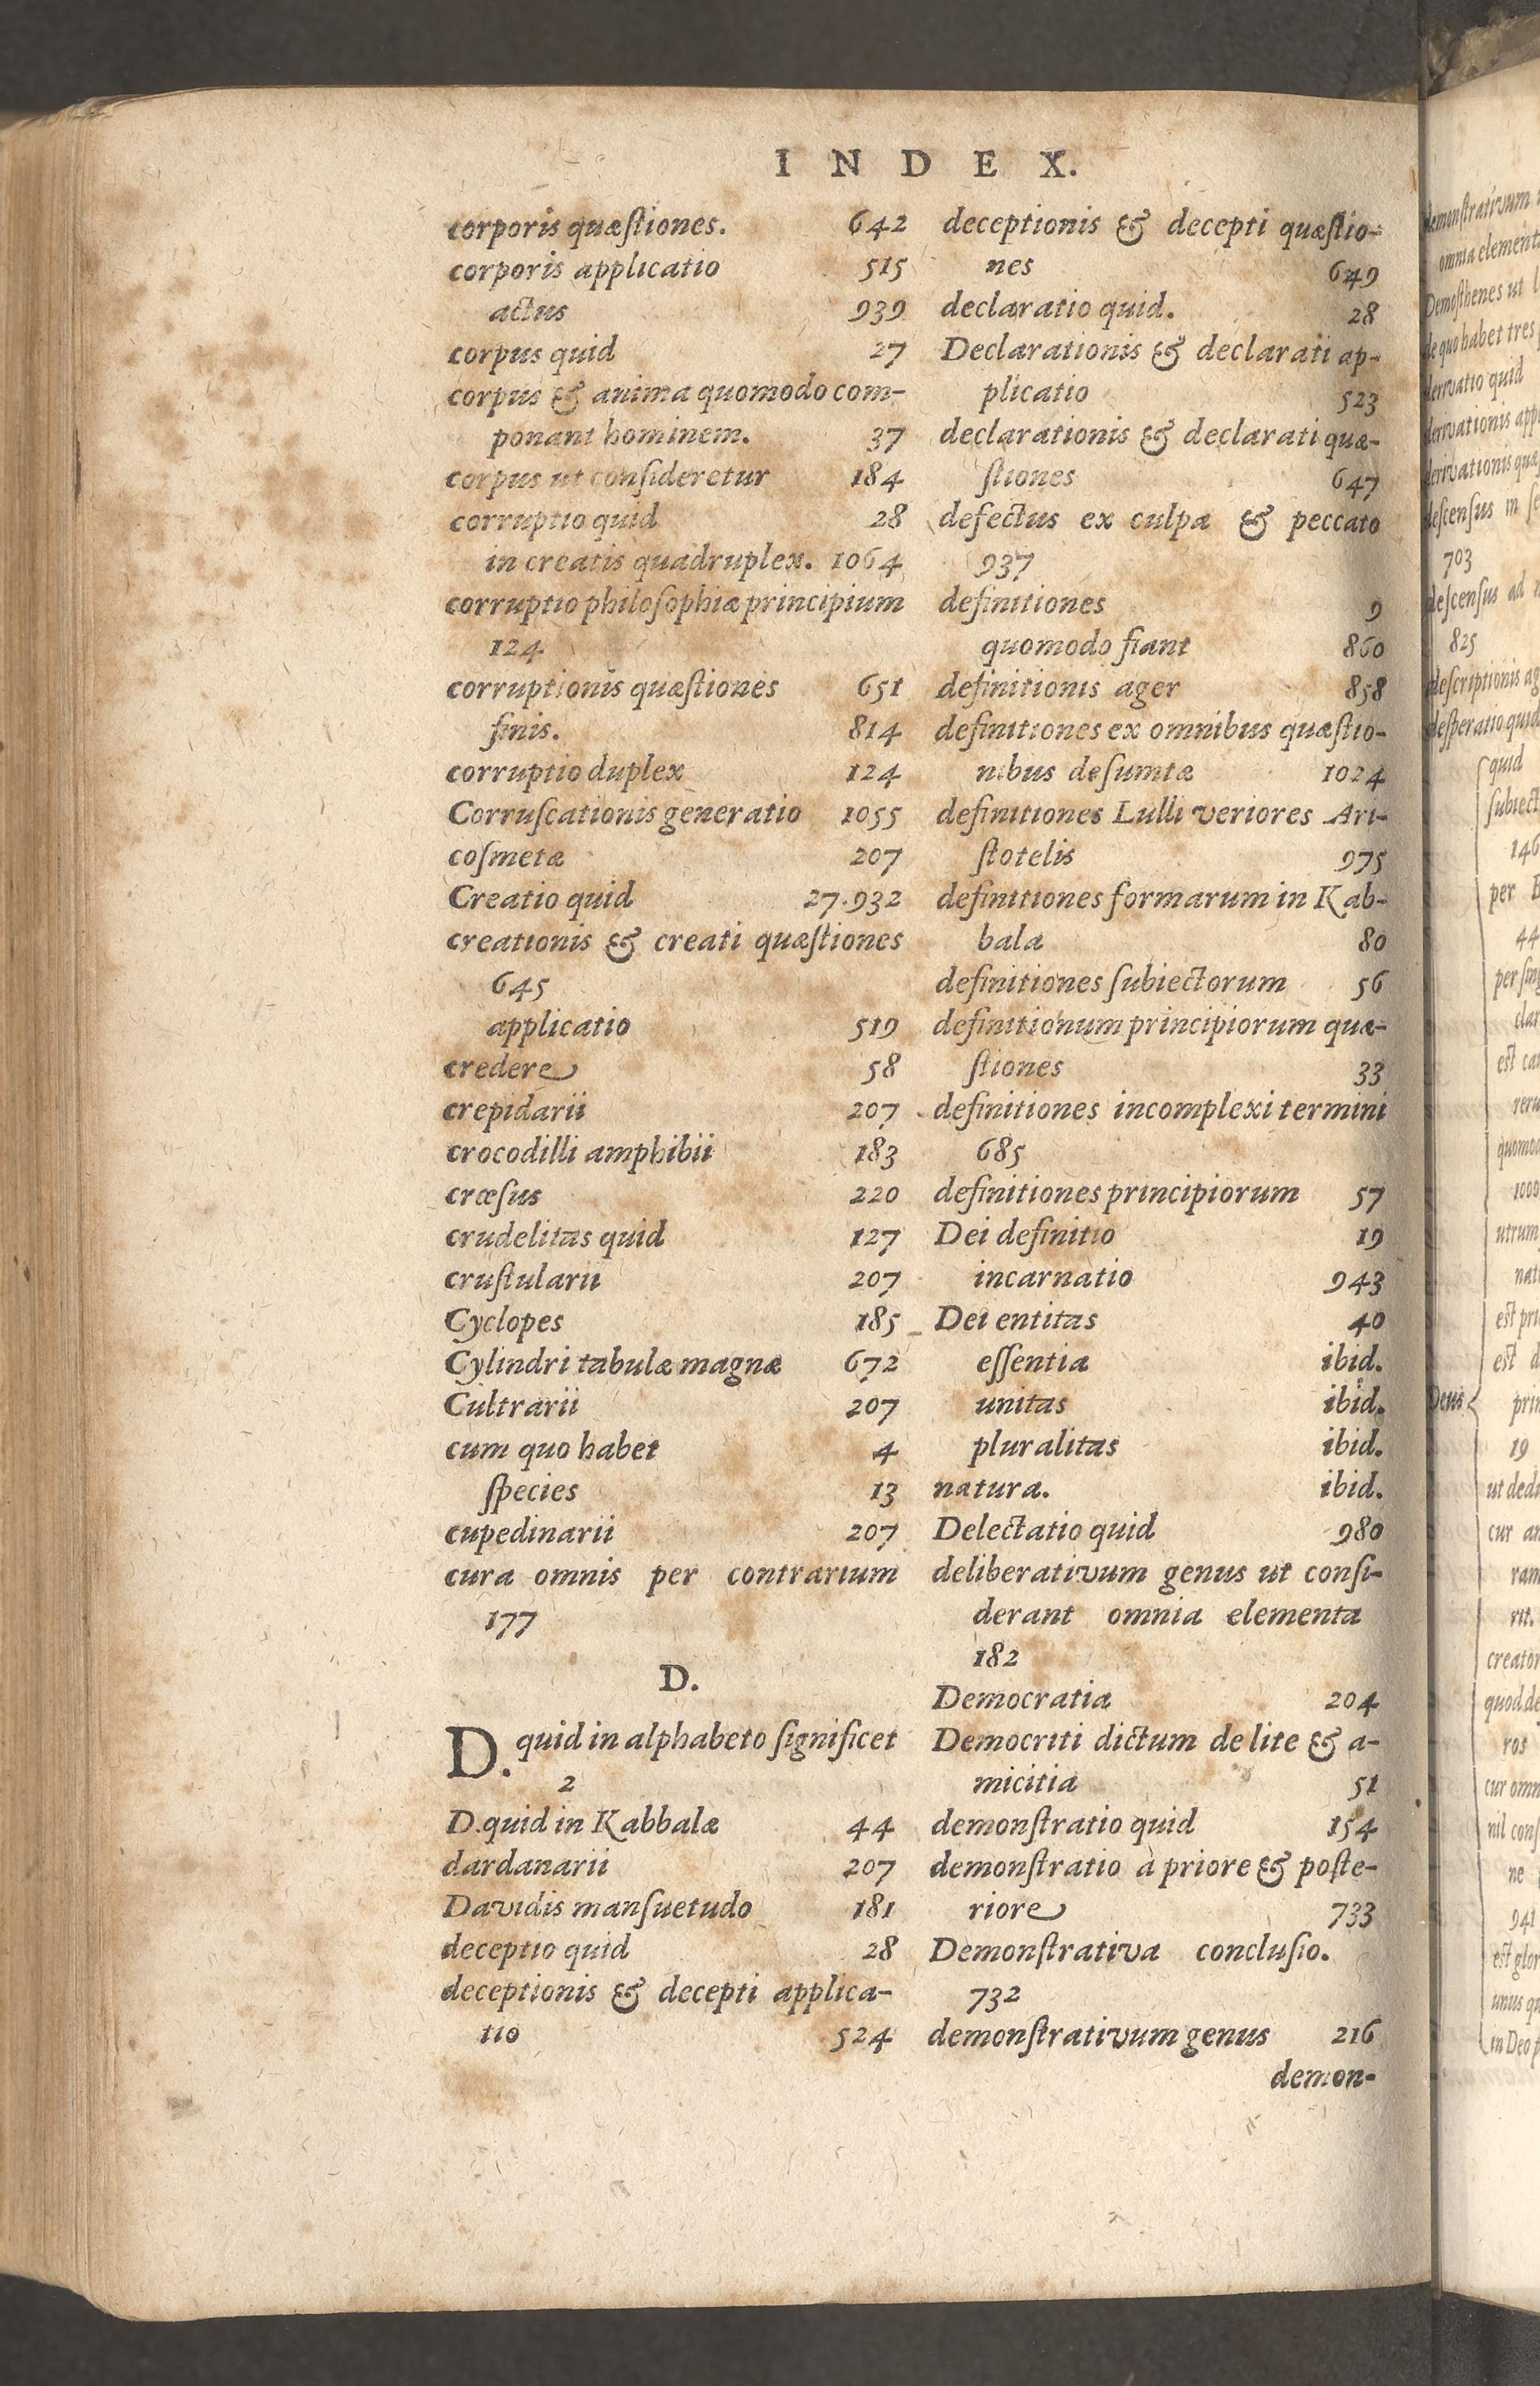 INDEX.
corporis quæſtiones. 642
corporis applicatio 515
actus 939
corpus quid 27
corpus & anima quomodo com-
ponant hominem. 37
corpus ut conſideretur 184
corruptio quid 28
in creatis quadruplex. 1064
corruptio philoſophiæ principium
124
corruptionis quæſtiones 651
finis. 814
corruptio duplex 124
Corruſcationis generatio 1055
coſmetæ 207
Creatio quid 27.932
creationis & creati quæſtiones
645
applicatio 519
credere 58
crepidarii 207
crocodilli amphibii 183
crœſus 220
crudelitas quid 127
cruſtularii 207
Cyclopes 185
Cylindri tabulæ magnæ 672
Cultrarii 207
cum quo habet 4
ſpecies 13
cupedinarii 207
cura omnis per contrarium
177
D.
D. quid in alphabeto ſignificet
2
D. quid in Kabbalæ 44
dardanarii 207
Davidis manſuetudo 181
deceptio quid 28
deceptionis & decepti applica-
tio 524
deceptionis & decepti quæſtio-
nes 649
declaratio quid. 28
Declarationis & declarati ap-
plicatio 523
declarationis & declarati quæ-
ſtiones 647
defectus ex culpa & peccato
937
definitiones 9
quomodo fiant 860
definitionis ager 858
definitiones ex omnibus quæſtio-
nibus deſumtæ 1024
definitiones Lulli veriores Ari-
ſtotelis 975
definitiones formarum in Kab-
bala 80
definitiones ſubiectorum 56
definitionum principiorum quæ-
ſtiones 33
definitiones incomplexi termini
685
definitiones principiorum 57
Dei definitio 19
incarnatio 943
Dei entitas 40
eſſentia ibid.
unitas ibid.
pluralitas ibid.
natura. ibid.
Delectatio quid 980
deliberativum genus ut conſi-
derant omnia elementa
182
Democratia 204
Democriti dictum de lite & a-
micitia 51
demonſtratio quid 154
demonſtratio à priore & poſte-
riore 733
Demonſtrativa concluſio.
732
demonſtrativum genus 216
demon-
demonſtrativum
omnia
Demoſthenes ut
de quo habet tres
derivatio quid
derivationis
derivationis
deſcenſus in
703
deſcenſus ad
825
deſcriptionis
deſperatio quid
quid
146
per
44
per
est
1000
utrum
est
est
Deus
19
ut
cur
rit.
creator
quod
ros
cur
nil
ne
941
est
unus
in Deo